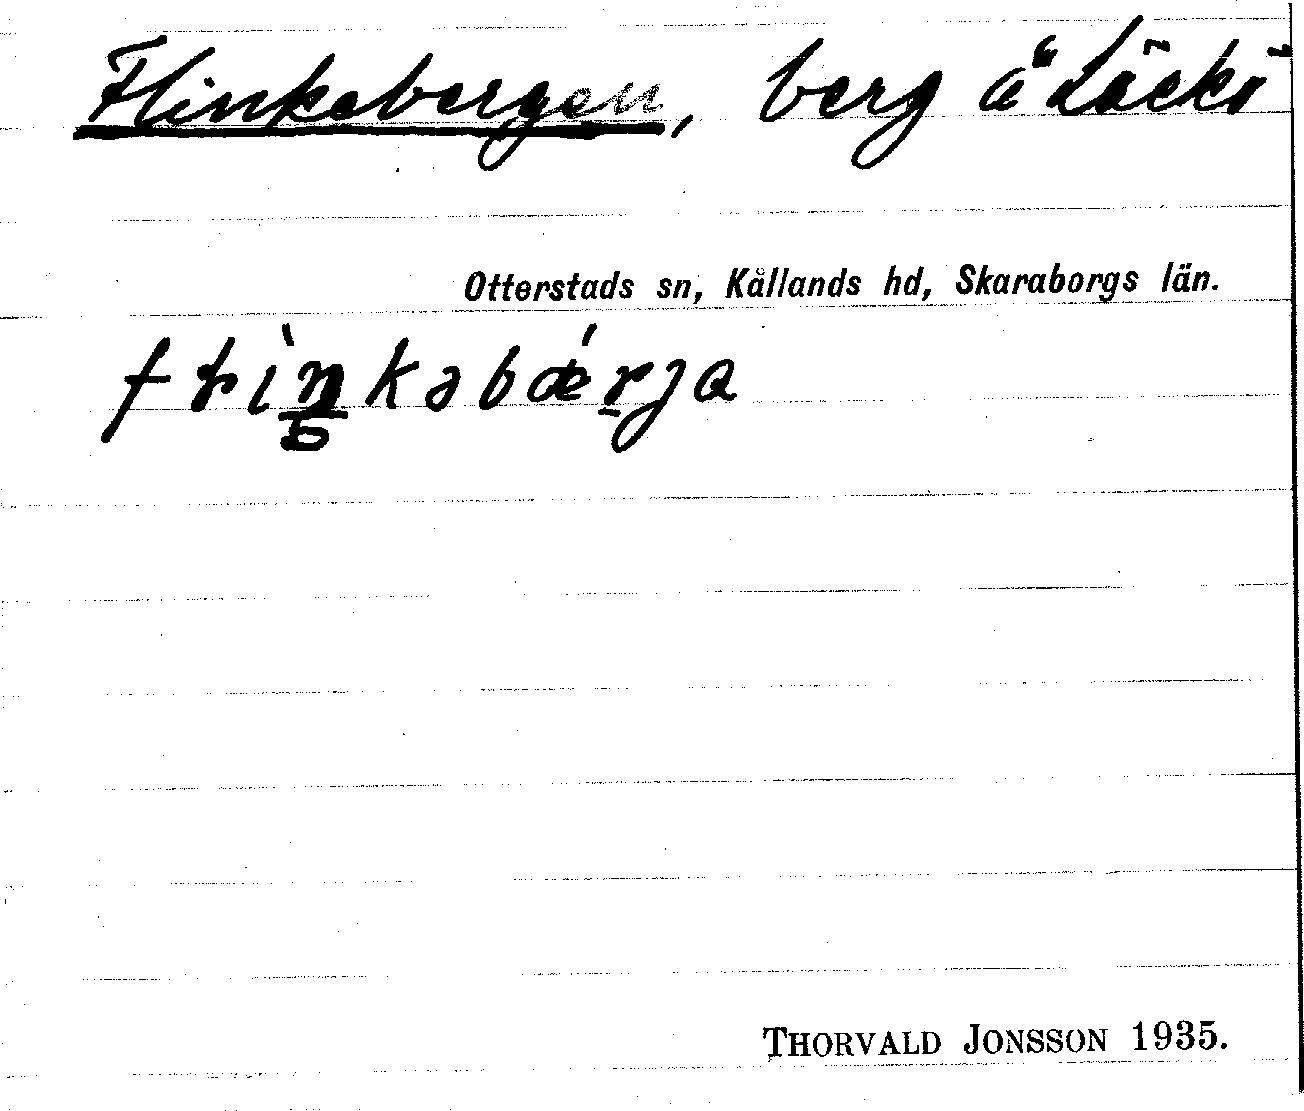 Flinkebergen, berg å Läckö
Otterstads sn, Kållands hd, Skaraborgs län.
THORVALD JONSSON 1935.